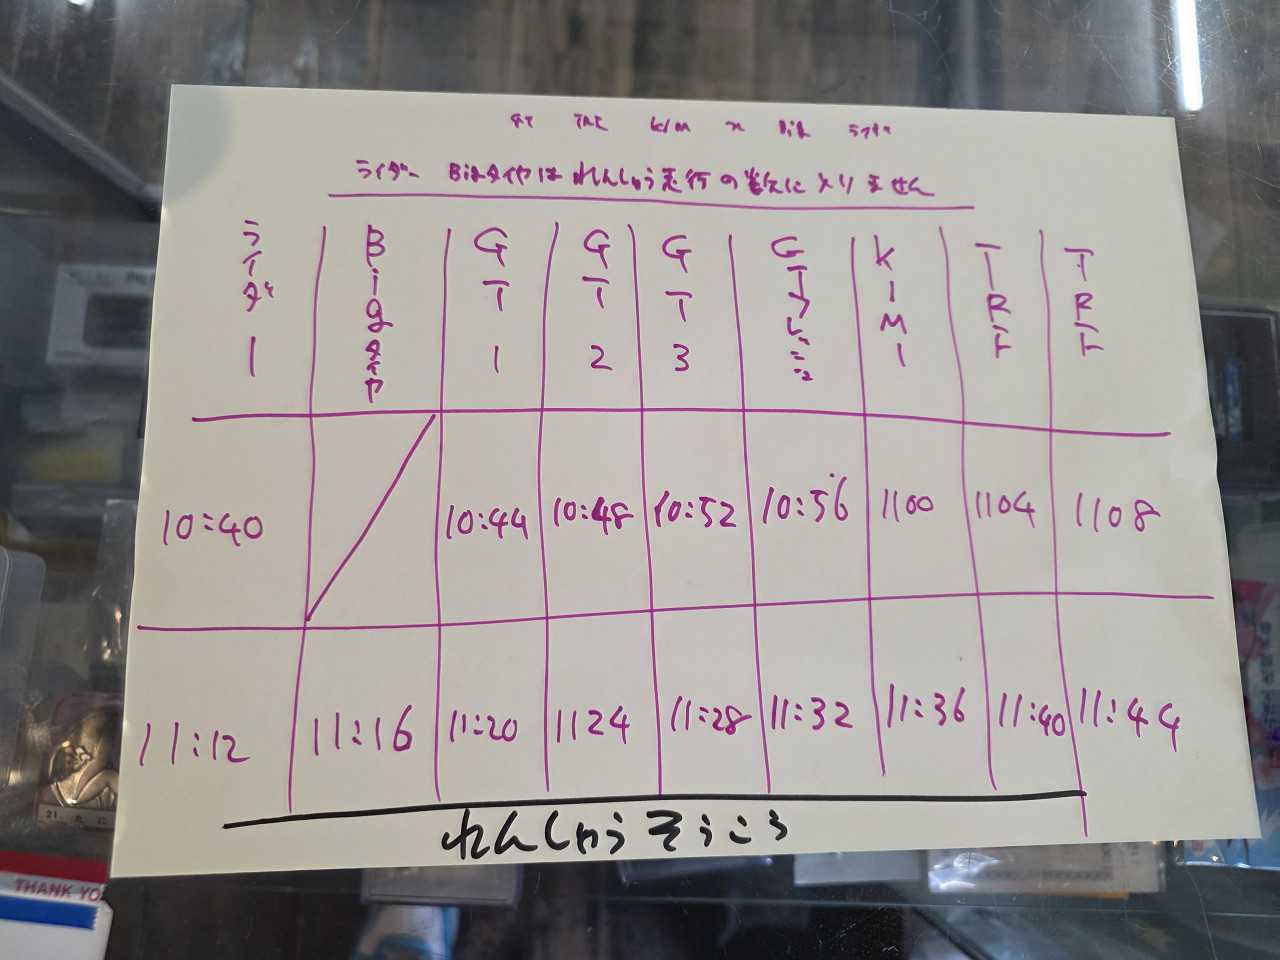 GT TRF K/M n Big ライダー
ライダー Bigタイヤはれんしゅう走行の
ライダー1 Bigタイヤ GT1 GT2 GT3 GT K1M1 TRF TRF
10:40 10:44 10:48 10:52 10:56 1100 1104 1108
11:12 11:16 11:20 1124 11:28 11:32 11:36 11:40 11:44
れんしゅうそうころ
THANK YO
21.